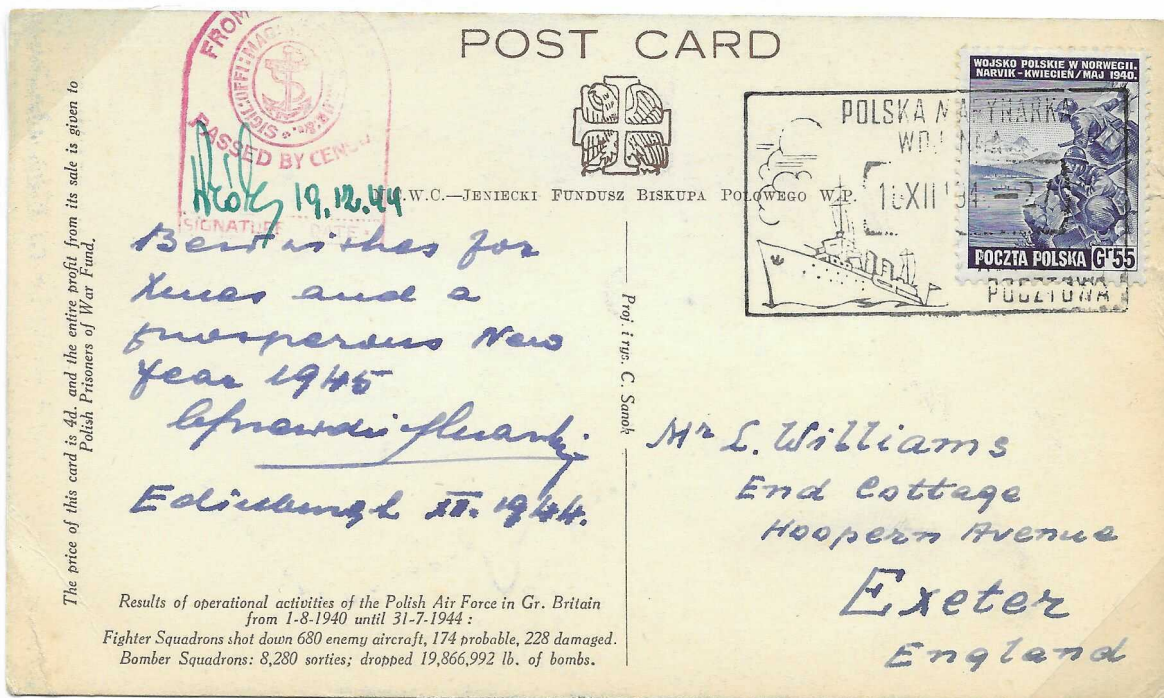 POST CARD
FROM
SIGIL: OFFI: MAG:
PASSED BY CENSO
19.12.44
SIGNATURE DATE
WOJSKO POLSKIE W NORWEGII.
NARVIK - KWIECIEŃ / MAJ 1940.
POCZTA POLSKA Gr 55
POLSKA MARYNARKA
WOJENNA
XII
POCZTOWA
W.C.—JENIECKI FUNDUSZ BISKUPA POLOWEGO W.P.
The price of this card is 4d. and the entire profit from its sale is given to
Polish Prisoners of War Fund.
Best wishes for
Xmas and a
prosperous New
Year 1945
Edinburgh XII. 1944.
Proj. i rys. C. Sanok
Mr L. Williams
End Cottage
Hoopern Avenue
Exeter
England
Results of operational activities of the Polish Air Force in Gr. Britain
from 1-8-1940 until 31-7-1944 :
Fighter Squadrons shot down 680 enemy aircraft, 174 probable, 228 damaged.
Bomber Squadrons: 8,280 sorties; dropped 19,866,992 lb. of bombs.